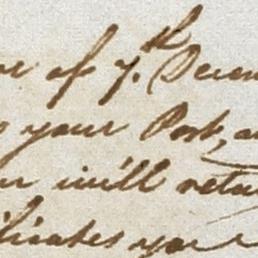 of 7.th Decem
your Post, a
will retu
ificates you